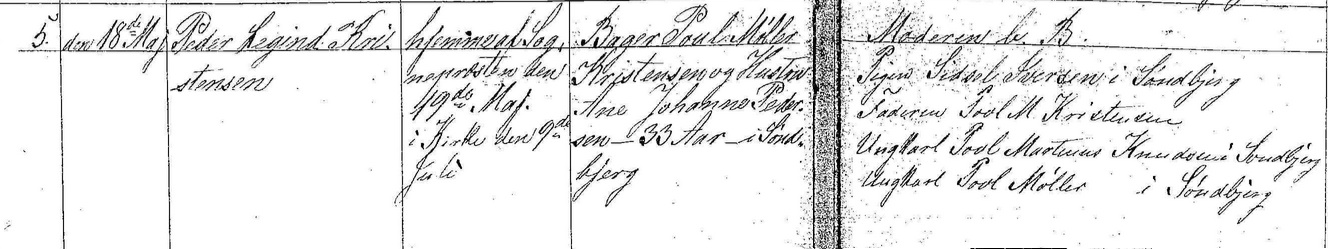 5.
den 18de Maj
Peder Legind Kri-
stensen
hjemme af Sog-
nepræsten den
19de Maj.
i Kirke den 9de
Juli
Bager Poul Møller
Kristensen og Hustru
Ane Johanne Peder-
sen 33 Aar i Sønd-
bjerg
Moderen b. B.
Pigen Sidsel Iversen i Søndbjerg
Faderen Povl M Kristensen
Ungkarl Povl Martinus Knudsen i Søndbjerg
Ungkarl Povl Møller i Søndbjerg